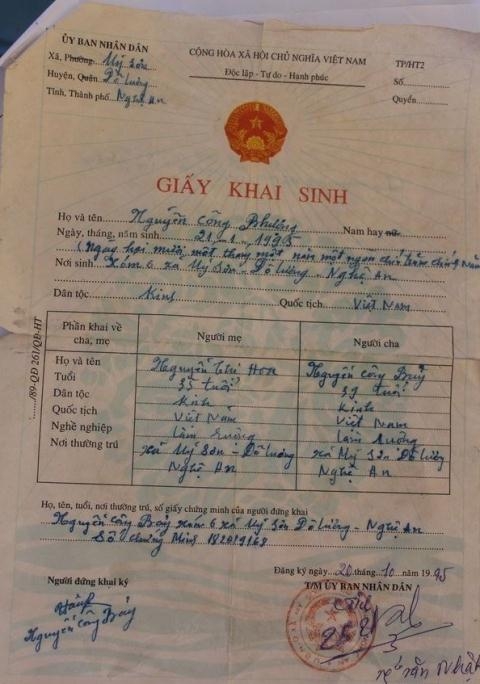 ỦY BAN NHÂN DÂN
Xã, Phường Mỹ Sơn
Huyện, Quận Đô Lương
Tỉnh, Thành phố Nghệ An
CỘNG HÒA XÃ HỘI CHỦ NGHĨA VIỆT NAM
Độc lập - Tự do - Hạnh phúc
TP/HT2
Số
Quyển
GIẤY KHAI SINH
Họ và tên Nguyễn Công Phượng Nam hay nữ
Ngày, tháng, năm sinh 21 - 1 - 1995
(Ngày hai mươi một tháng một năm một ngàn chín trăm chín năm
Nơi sinh Xóm 6 xã Mỹ Sơn - Đô Lương - Nghệ An
Dân tộc Kinh Quốc tịch Việt Nam
Phần khai về cha, mẹ Người mẹ Người cha
Họ và tên Nguyễn Thị Hoa Nguyễn Công Bảy
Tuổi 35 tuổi 39 tuổi
Dân tộc Kinh Kinh
Quốc tịch Việt Nam Việt Nam
Nghề nghiệp Làm ruộng Làm ruộng
Nơi thường trú xã Mỹ Sơn - Đô Lương xã Mỹ Sơn Đô Lương
Nghệ An Nghệ An
/89-QĐ 261/QĐ-HT
Họ, tên, tuổi, nơi thường trú, số giấy chứng minh của người đứng khai
Nguyễn Công Bảy xóm 6 xã Mỹ Sơn Đô Lương - Nghệ An
Số chứng minh
Đăng ký ngày 20 tháng 10 năm 1995
Người đứng khai ký
T/M ỦY BAN NHÂN DÂN
Nguyễn Công Bảy